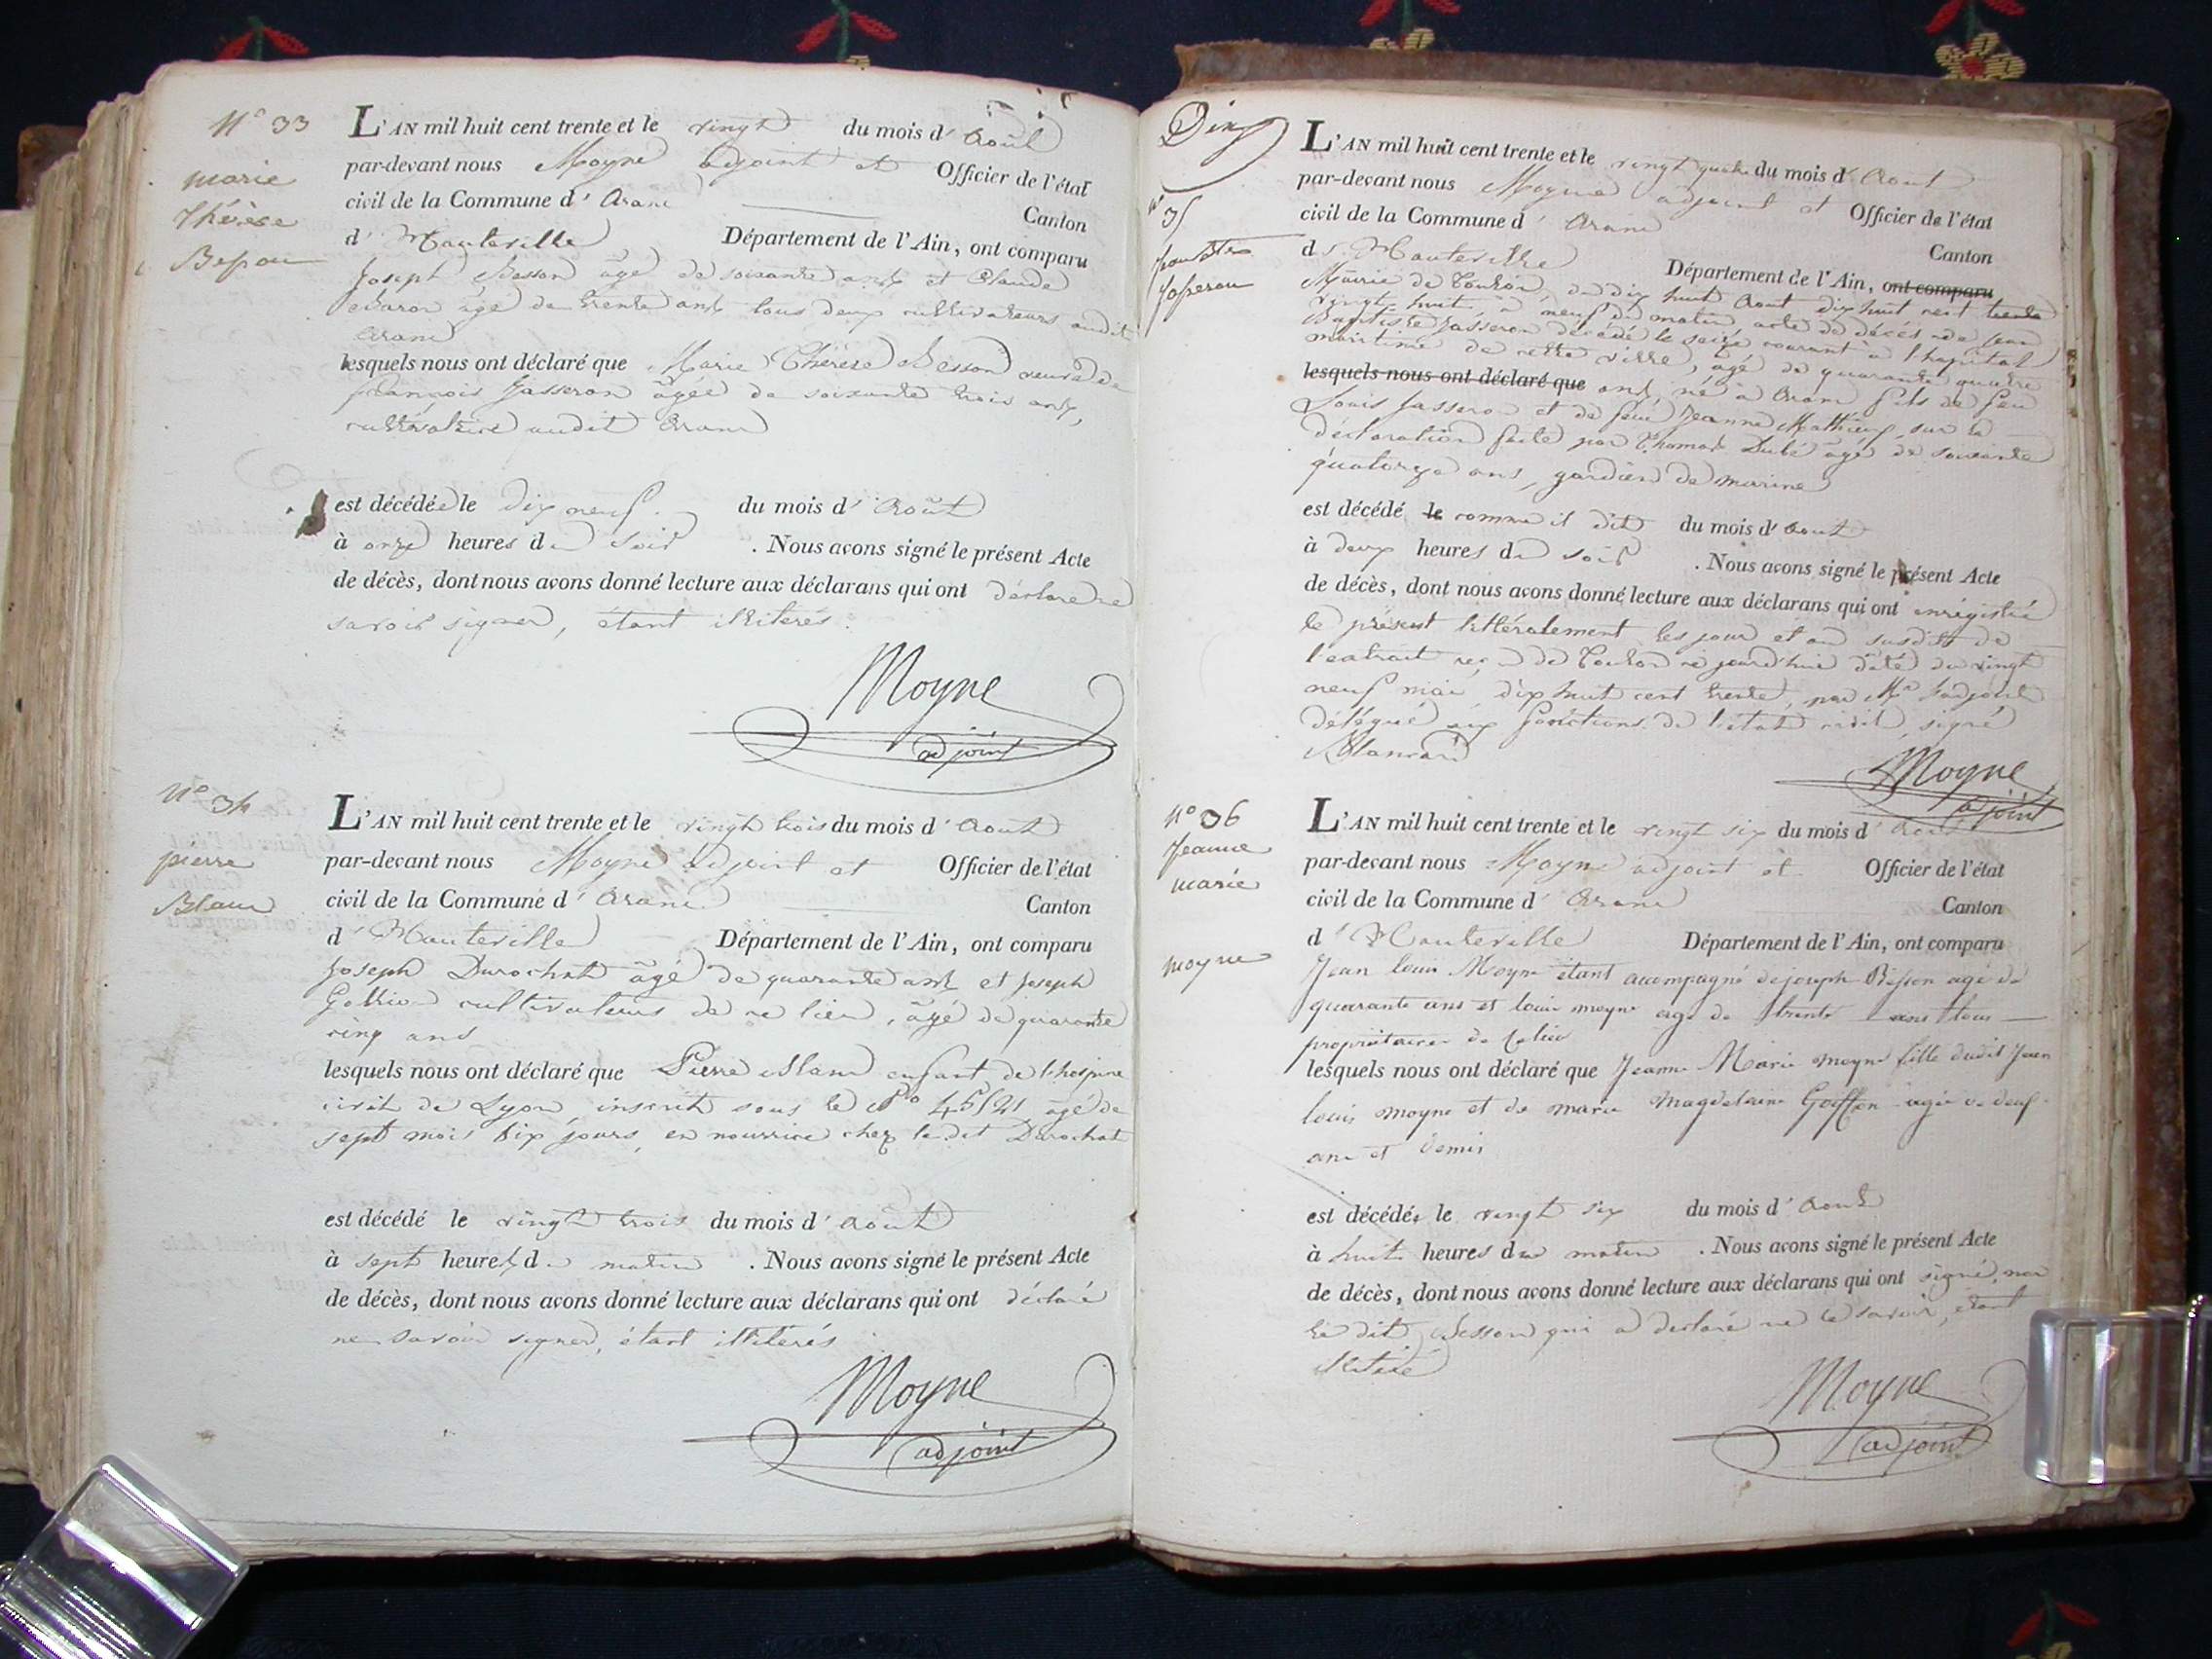 N° 33
marie
thérèse
Besson
L'AN mil huit cent trente et le vingt du mois d'Août
par-devant nous Moyne adjoint et Officier de l'état
civil de la Commune d'Aranc Canton
d'Hauteville Département de l'Ain, ont comparu
Joseph Besson âgé de soixante ans et Claude
Baron âgé de trente ans tous deux cultivateurs audit
Aranc
lesquels nous ont déclaré que Marie Thérèse Besson veuve de
françois Jasseron âgée de soixante trois ans,
cultivatrice audit Aranc
est décédée le dix neuf du mois d'Août
à onze heures du soir. Nous avons signé le présent Acte
de décès, dont nous avons donné lecture aux déclarans qui ont déclaré ne
savoir signer, étant illiterés.
Moyne
adjoint
N° 34
pierre
Blanc
L'AN mil huit cent trente et le vingt trois du mois d'Août
par-devant nous Moyne adjoint et Officier de l'état
civil de la Commune d'Aranc Canton
d'Hauteville Département de l'Ain, ont comparu
Joseph Durochat âgé de quarante ans et Joseph
cultivateurs de ce lieu, âgé de quarante
cinq ans
lesquels nous ont déclaré que Pierre enfant de l'hospice
civil de Lyon, inscrit sous le N° âgé de
sept mois dix jours, en nourrice chez le dit Durochat
est décédé le vingt trois du mois d'Août
à sept heures du matin. Nous avons signé le présent Acte
de décès, dont nous avons donné lecture aux déclarans qui ont déclaré
ne savoir signer, étant illiterés
Moyne
adjoint
N°
35
Jean Bte
Josseron
L'AN mil huit cent trente et le vingt quatre du mois d'Aout
par-devant nous Moyne adjoint et Officier de l'état
civil de la Commune d'Aranc Canton
d'Hauteville Département de l'Ain, ont comparu
Mairie de Toulon, du dix huit Aout dix huit cent
vingt huit à neuf du matin, acte de décès de Jean
Baptiste Jasseron décédé le seize courant à l'hopital
maritime de cette ville, âgé de quarante quatre
lesquels nous ont déclaré que ans, né à Aranc fils de feu
Louis Jasseron et de feue Jeanne Mathieux, sur la
déclaration faite par Thomas Dubé âgé de soixante
quatorze ans, gardien de marine
est décédé le comme il dit du mois d'Aout
à deux heures du soir. Nous avons signé le présent Acte
de décès, dont nous avons donné lecture aux déclarans qui ont enrégistré
le présent littéralement les jour et an susdits de
l'extrait reçu de Toulon ce jourd'hui daté du vingt
neuf mai dix huit cent trente, par Mr l'adjoint
délégué aux fonctions de l'état civil, signé
Moyne
adjoint
N° 36
Jeanne
marie
moyne
L'AN mil huit cent trente et le vingt six du mois d'Aout
par-devant nous Moyne adjoint et Officier de l'état
civil de la Commune d'Aranc Canton
d'Hauteville Département de l'Ain, ont comparu
Jean louis Moyne étant accompagné de joseph Besson agé de
quarante ans et louis moyne agé de trente ans tous
propriétaires de ce lieu
lesquels nous ont déclaré que Jeanne Marie moyne fille dudit Jean
louis moyne et de marie Magdelaine Goiffon agée de deux
ans et demis
est décédée le vingt six du mois d'Aout
à huit heures du matin. Nous avons signé le présent Acte
de décès, dont nous avons donné lecture aux déclarans qui ont signé, non
le dit Besson qui a declaré ne le savoir, étant
illitéré
Moyne
adjoint